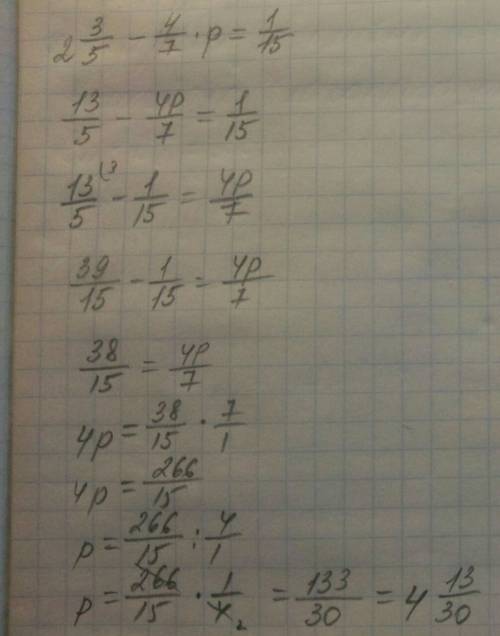 2 3/5 − 4/7 · p = 1/15
13/5 − 4p/7 = 1/15
13/5 (3 − 1/15 = 4p/7
39/15 − 1/15 = 4p/7
38/15 = 4p/7
4p = 38/15 · 7/1
4p = 266/15
p = 266/15 : 4/1
p = 266/15 · 1/4 2 = 133/30 = 4 13/30